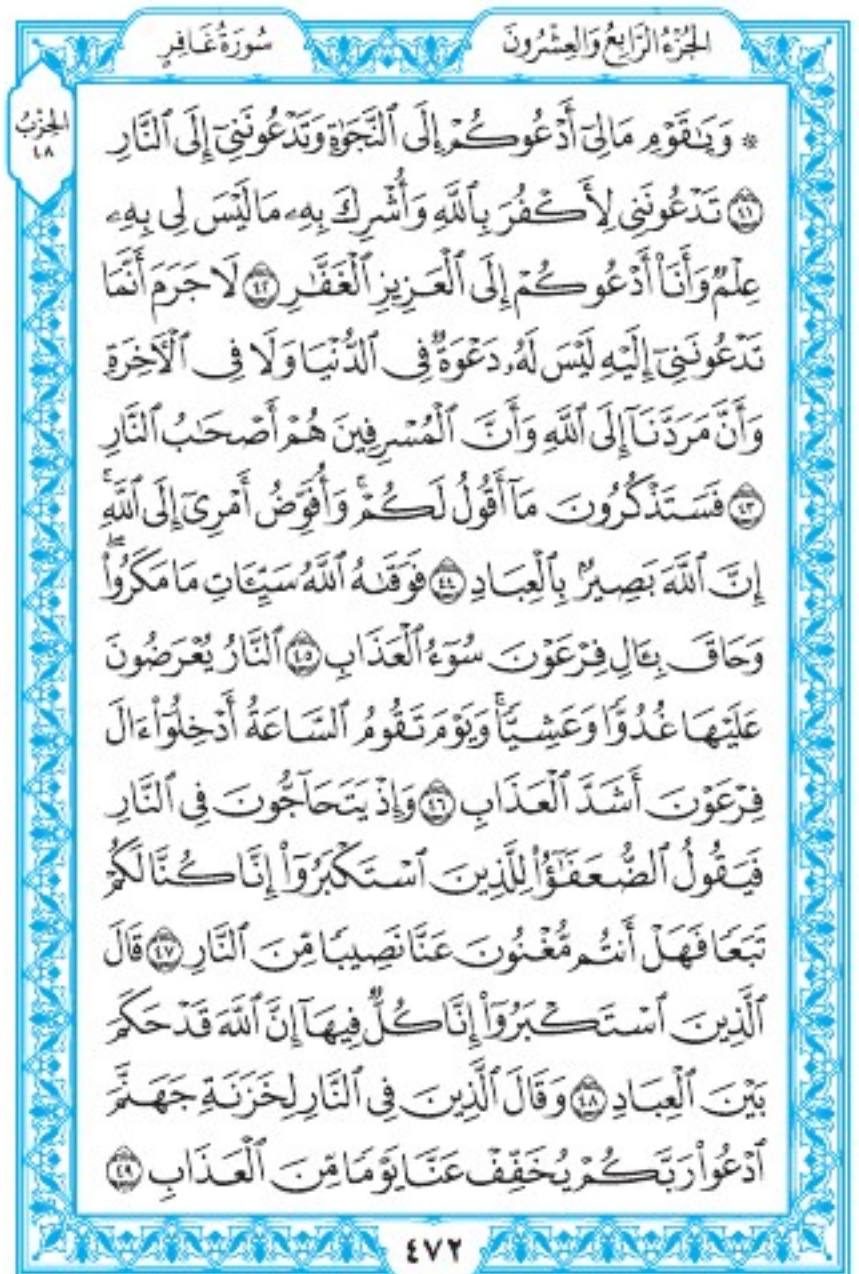 الجُزْءُ الرَّابِعُ وَالعِشْرُونَ
سُورَةُ غَافِرٍ
الحِزْبُ
٤٨
۞ وَيَٰقَوۡمِ مَا لِيٓ أَدۡعُوكُمۡ إِلَى ٱلنَّجَوٰةِ وَتَدۡعُونَنِيٓ إِلَى ٱلنَّارِ
٤١ تَدۡعُونَنِي لِأَكۡفُرَ بِٱللَّهِ وَأُشۡرِكَ بِهِۦ مَا لَيۡسَ لِي بِهِۦ
عِلۡمٞ وَأَنَا۠ أَدۡعُوكُمۡ إِلَى ٱلۡعَزِيزِ ٱلۡغَفَّٰرِ ٤٢ لَا جَرَمَ أَنَّمَا
تَدۡعُونَنِيٓ إِلَيۡهِ لَيۡسَ لَهُۥ دَعۡوَةٞ فِي ٱلدُّنۡيَا وَلَا فِي ٱلۡأٓخِرَةِ
وَأَنَّ مَرَدَّنَآ إِلَى ٱللَّهِ وَأَنَّ ٱلۡمُسۡرِفِينَ هُمۡ أَصۡحَٰبُ ٱلنَّارِ
٤٣ فَسَتَذۡكُرُونَ مَآ أَقُولُ لَكُمۡۚ وَأُفَوِّضُ أَمۡرِيٓ إِلَى ٱللَّهِۚ
إِنَّ ٱللَّهَ بَصِيرُۢ بِٱلۡعِبَادِ ٤٤ فَوَقَىٰهُ ٱللَّهُ سَيِّـَٔاتِ مَا مَكَرُواْۖ
وَحَاقَ بِـَٔالِ فِرۡعَوۡنَ سُوٓءُ ٱلۡعَذَابِ ٤٥ ٱلنَّارُ يُعۡرَضُونَ
عَلَيۡهَا غُدُوّٗا وَعَشِيّٗاۚ وَيَوۡمَ تَقُومُ ٱلسَّاعَةُ أَدۡخِلُوٓاْ ءَالَ
فِرۡعَوۡنَ أَشَدَّ ٱلۡعَذَابِ ٤٦ وَإِذۡ يَتَحَآجُّونَ فِي ٱلنَّارِ
فَيَقُولُ ٱلضُّعَفَٰٓؤُاْ لِلَّذِينَ ٱسۡتَكۡبَرُوٓاْ إِنَّا كُنَّا لَكُمۡ
تَبَعٗا فَهَلۡ أَنتُم مُّغۡنُونَ عَنَّا نَصِيبٗا مِّنَ ٱلنَّارِ ٤٧ قَالَ
ٱلَّذِينَ ٱسۡتَكۡبَرُوٓاْ إِنَّا كُلّٞ فِيهَآ إِنَّ ٱللَّهَ قَدۡ حَكَمَ
بَيۡنَ ٱلۡعِبَادِ ٤٨ وَقَالَ ٱلَّذِينَ فِي ٱلنَّارِ لِخَزَنَةِ جَهَنَّمَ
ٱدۡعُواْ رَبَّكُمۡ يُخَفِّفۡ عَنَّا يَوۡمٗا مِّنَ ٱلۡعَذَابِ ٤٩
٤٧٢